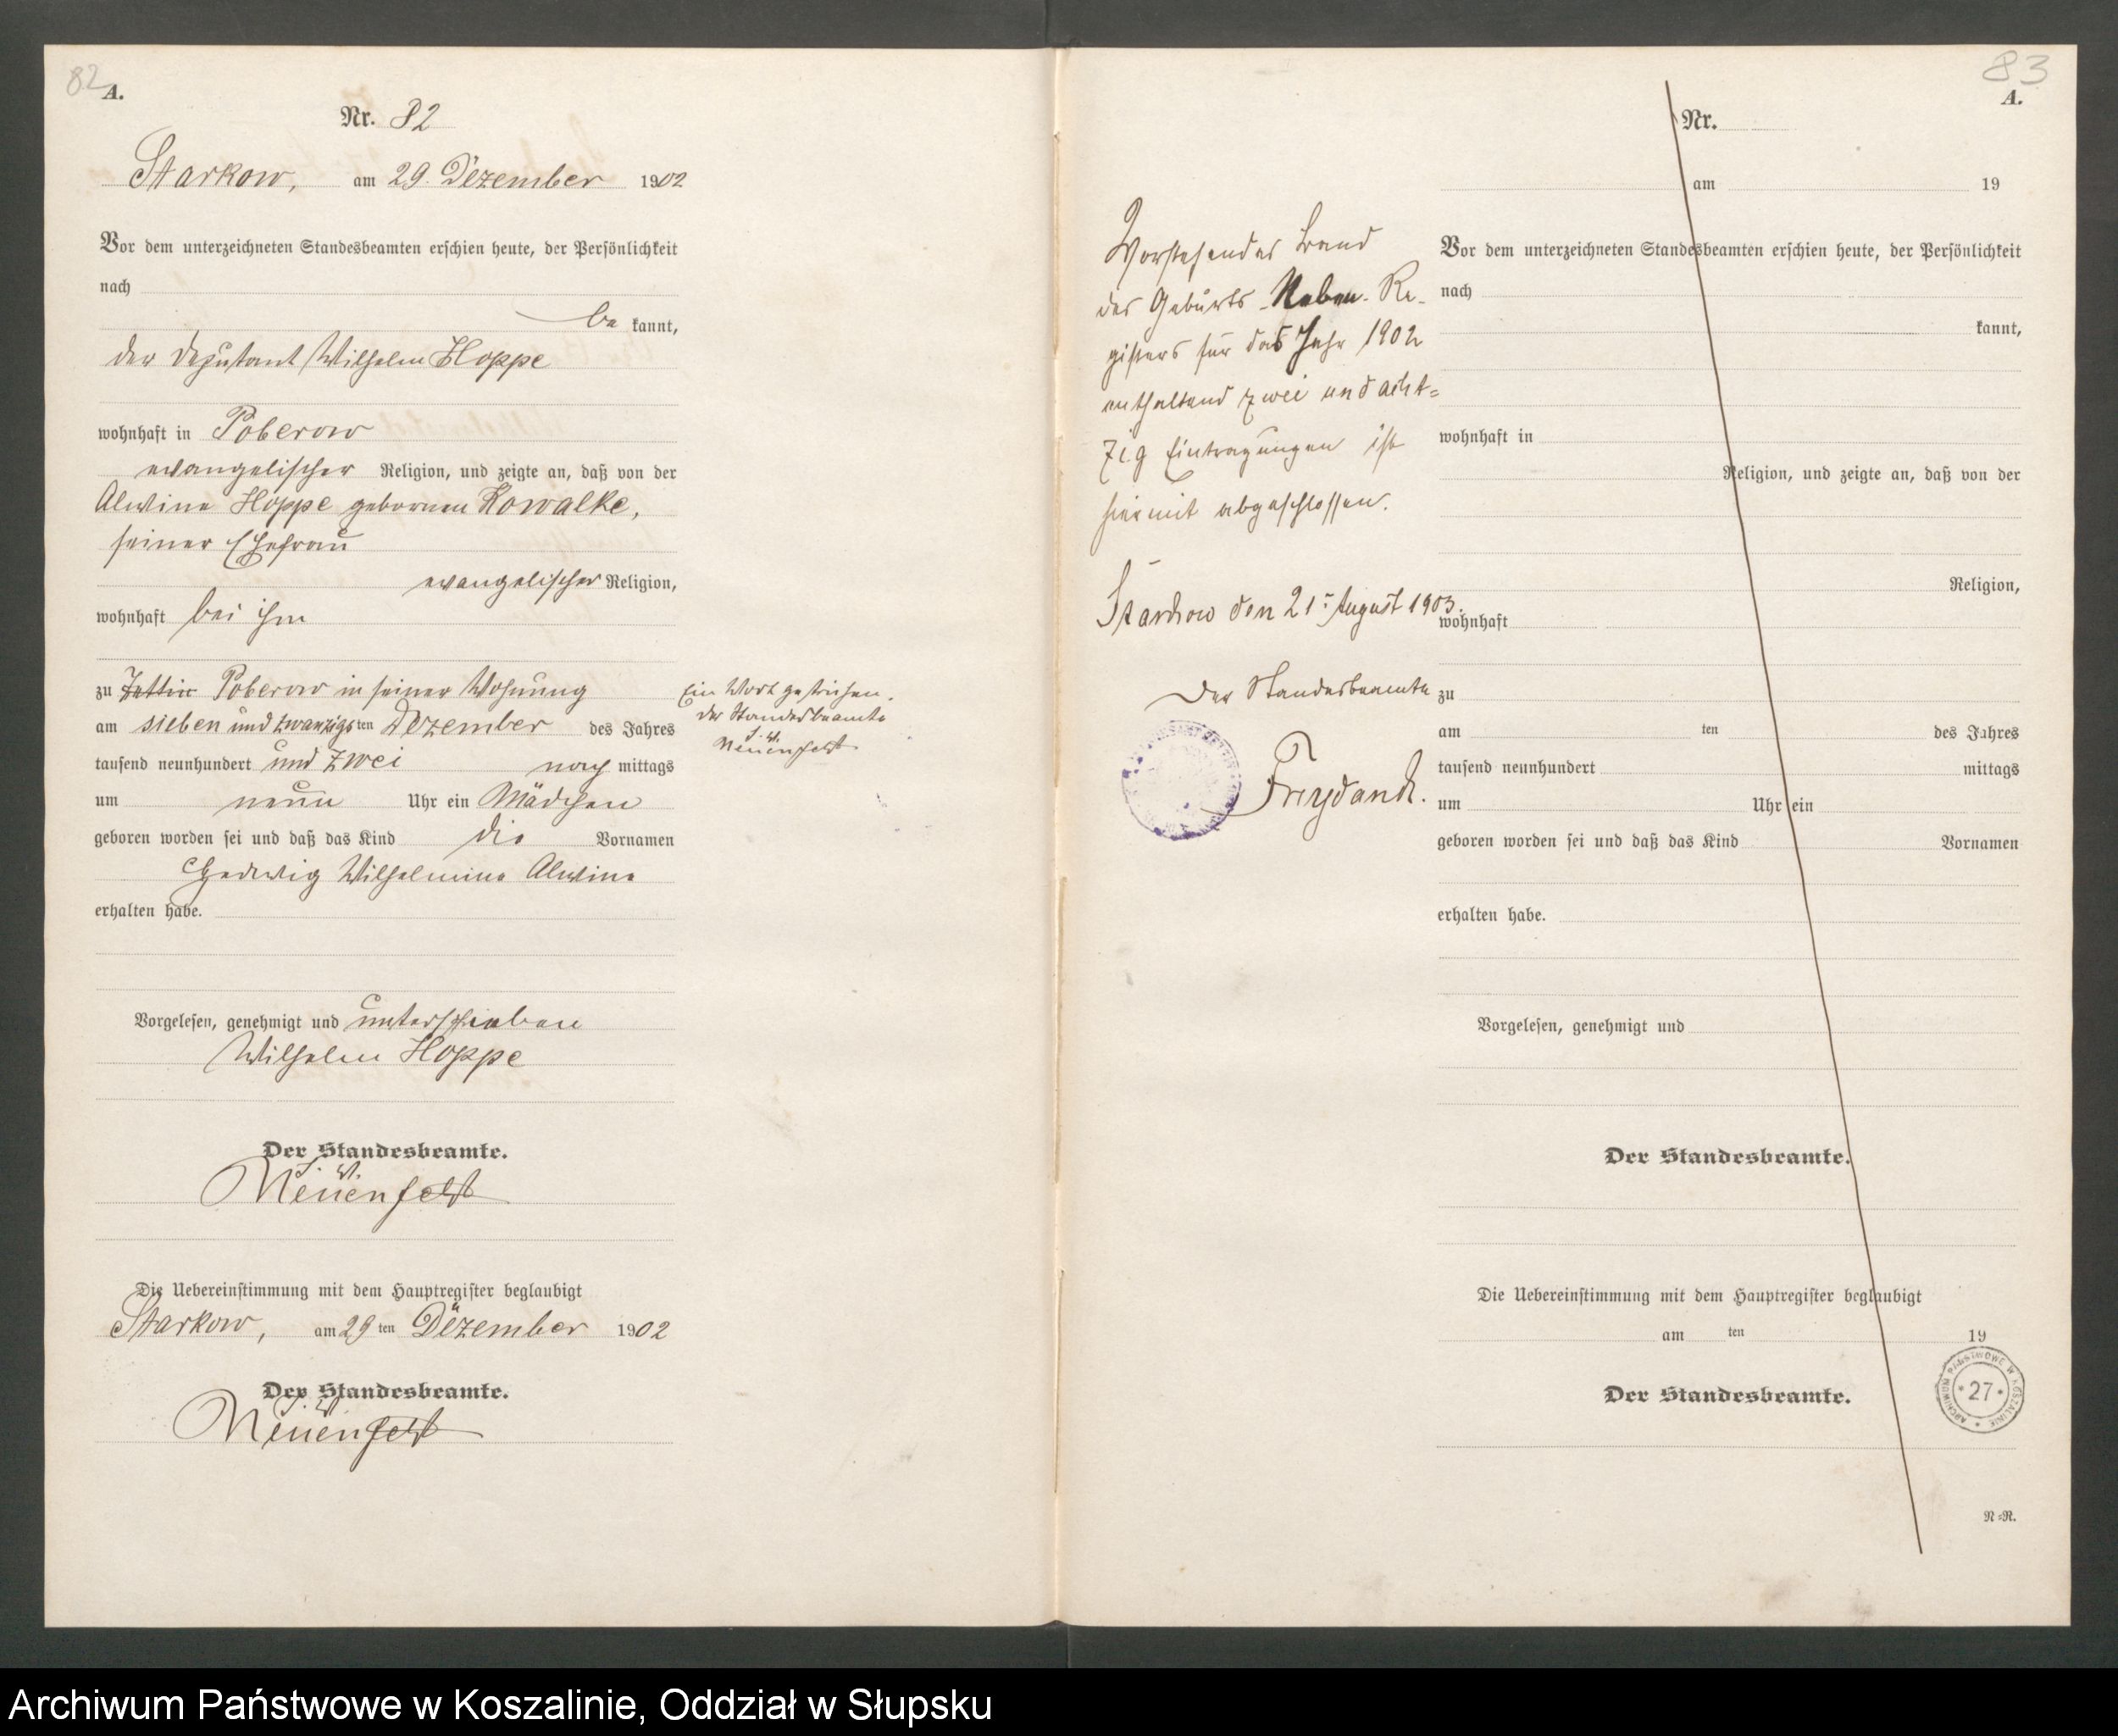 82
A.
Nr. 82
Starkow, am 29. Dezember 1902
Vor dem unterzeichneten Standesbeamten erschien heute, der Persönlichkeit
nach
be kannt,
der Deputant Wilhelm Hoppe
wohnhaft in Poberow
evangelischer Religion, und zeigte an, daß von der
Alwine Hoppe geborenen Kowalke,
seiner Ehefrau
evangelischer Religion,
wohnhaft bei ihm
zu Zettin Poberow in seiner Wohnung
am sieben und zwanzigsten Dezember des Jahres
tausend neunhundert und zwei nach mittags
um neun Uhr ein Mädchen
geboren worden sei und daß das Kind die Vornamen
Hedwig Wilhelmine Alwine
erhalten habe.
Ein Wort gestrichen.
Der Standesbeamte
J. V.
Neuenfeldt
Vorgelesen, genehmigt und unterschrieben
Wilhelm Hoppe
Der Standesbeamte.
J. V.
Neuenfeldt
Die Uebereinstimmung mit dem Hauptregister beglaubigt
Starkow, am 29 ten Dezember 1902
Der Standesbeamte.
J. V.
Neuenfeldt
83
A.
Nr.
am 19
Vorstehender Band
des Geburts-Neben-Re-
gisters für das Jahr 1902
enthaltend zwei und acht=
zig Eintragungen ist
hiermit abgeschlossen.
Starkow den 21. August 1903.
Der Standesbeamte
Freydank.
Vor dem unterzeichneten Standesbeamten erschien heute, der Persönlichkeit
nach
kannt,
wohnhaft in
Religion, und zeigte an, daß von der
Religion,
wohnhaft
zu
am ten des Jahres
tausend neunhundert mittags
um Uhr ein
geboren worden sei und daß das Kind Vornamen
erhalten habe.
Vorgelesen, genehmigt und
Der Standesbeamte.
Die Uebereinstimmung mit dem Hauptregister beglaubigt
am ten 19
Der Standesbeamte.
ARCHIWUM PAŃSTWOWE W KOSZALINIE
27
N=R.
Archiwum Państwowe w Koszalinie, Oddział w Słupsku